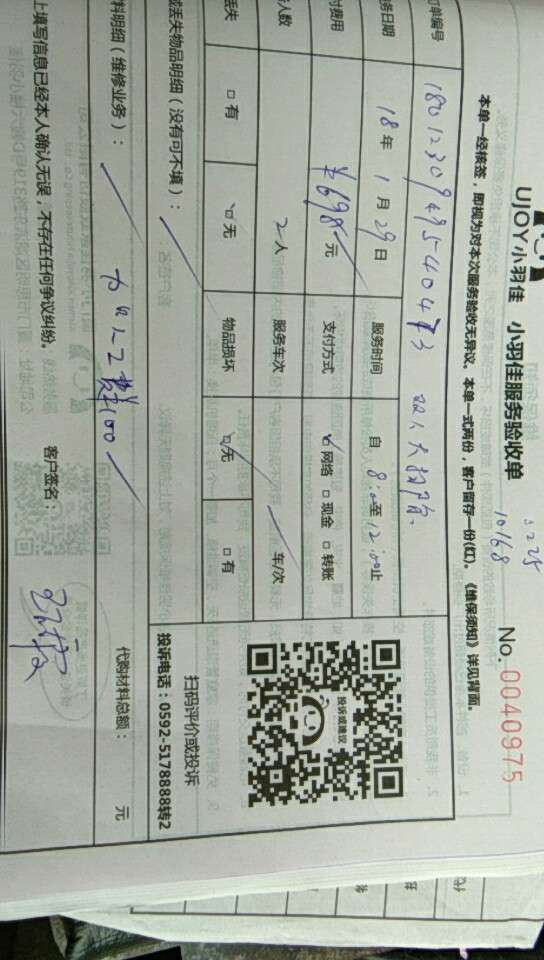 UJOY小羽佳 小羽佳服务验收单
No. 0040975
10168
本单一经核签，即视为对本次服务验收无异议。本单一式两份，客户留存一份(红)。《维保须知》详见背面。
单编号 双人大扫除
务日期 18年1月29日 服务时间 自8:00至12:00止
付费用 ¥698元 支付方式 ☑网络 □现金 □转账
人数 2人 服务车次 车/次
丢失 □有 ☑无 物品损坏 ☑无 □有
投诉或建议
扫码评价或投诉
或丢失物品明细（没有可不填）：
投诉电话：0592-5178888转2
料明细（维修业务）： 100
代购材料总额： 元
上填写信息已经本人确认无误，不存在任何争议纠纷。
客户签名：